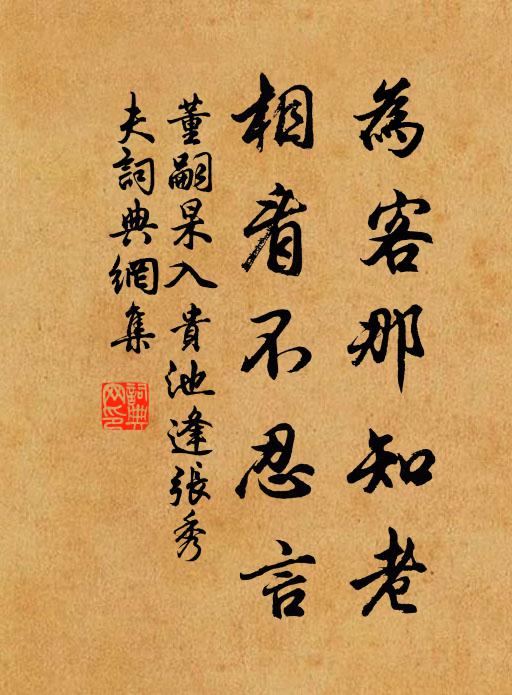 為客那知老
相看不忍言
董嗣杲入貴池逢張秀
夫詞典網集
詞典
网印